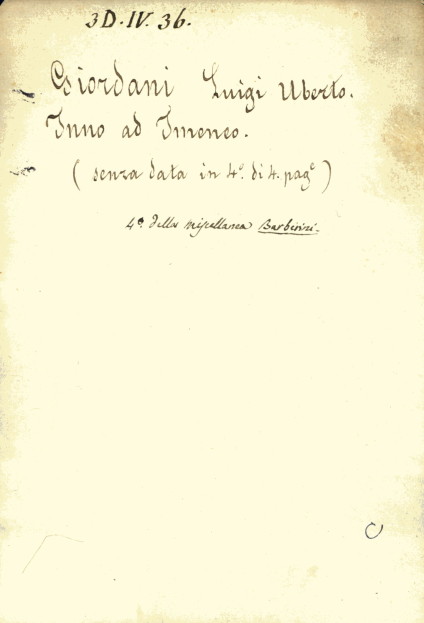 3D.IV.36.
Giordani Luigi Uberto.
Inno ad Imeneo.
(senza data in 4º. di 4. pagᵉ)
4ª. della miscellanea Barberini.
C